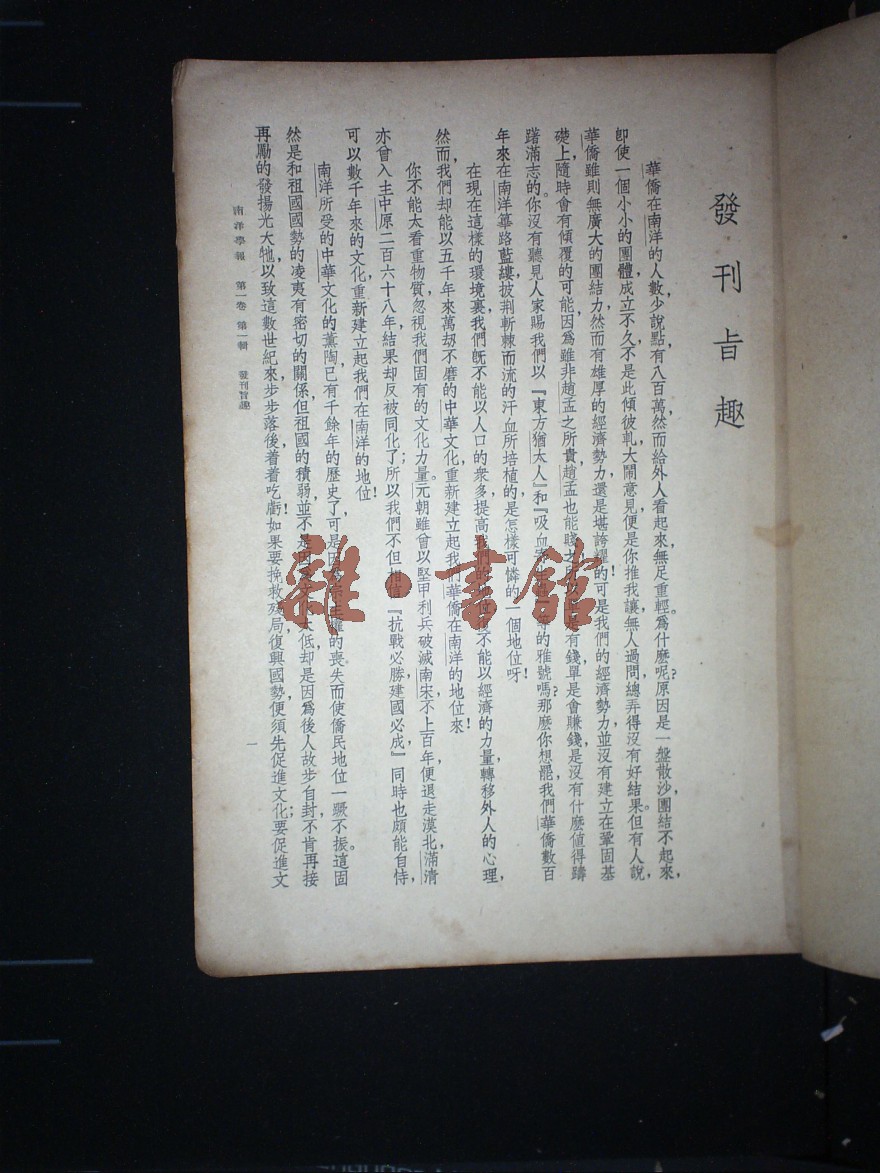 發刊旨趣
華僑在南洋的人數少說點有八百萬,然而給外人看起來,無足重輕。爲什麽呢?原因是一盤散沙,團結不起來,
卽使一個小小的團體,成立不久,不是此傾彼軋,大鬧意見,便是你推我讓,無人過問,總弄得沒有好結果。但有人說,
華僑雖則無廣大的團結力,然而有雄厚的經濟勢力,還是堪誇耀的!可是我們的經濟勢力,並沒有建立在鞏固基
礎上,隨時會有傾覆的可能,因爲雖非趙孟之所貴,趙孟也能賤之,所以有錢,單是會賺錢,是沒有什麽值得躊
躇滿志的。你沒有聽見人家賜我們以『東方猶太人』和『吸血 的雅號嗎?那麽你想罷,我們華僑數百
年來在南洋篳路藍縷,披荆斬棘而流的汗血所培植的是怎樣可憐的一個地位呀!
在現在這樣的環境裏,我們旣不能以人口的衆多提高我們的地位,復不能以經濟的力量轉移外人的心理,
然而,我們却能以五千年來萬刼不磨的中華文化,重新建立起我們華僑在南洋的地位來!
你不能太看重物質,忽視我們固有的文化力量。元朝雖曾以堅甲利兵破滅南宋,不上百年,便退走漠北,滿清
亦曾入主中原二百六十八年,結果却反被同化了;所以我們不但相信『抗戰必勝,建國必成』同時也頗能自恃,
可以數千年來的文化,重新建立起我們在南洋的地位!
南洋所受的中華文化的薰陶,已有千餘年的歷史了,可是因爲宗主權的喪失而使僑民地位一蹶不振。這固
然是和祖國國勢的凌夷有密切的關係,但祖國的積弱,並不是因爲文化太低,却是因爲後人故步自封,不肯再接
再勵的發揚光大牠,以致這數世紀來步步落後,着着吃虧!如果要挽救殘局,復興國勢,便須先促進文化;要促進文
南洋學報 第一卷 第一輯 發刊旨趣
一
雜·書館